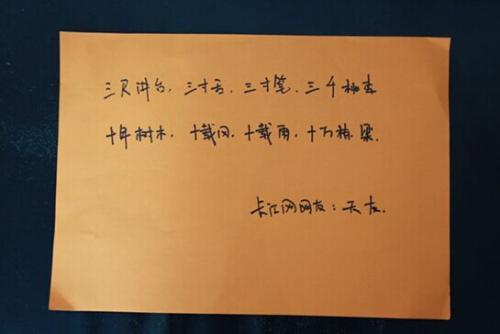 三尺讲台，三寸舌，三寸笔，三千桃李
十年树木，十载风，十载雨，十万栋梁。
长江网网友：天友